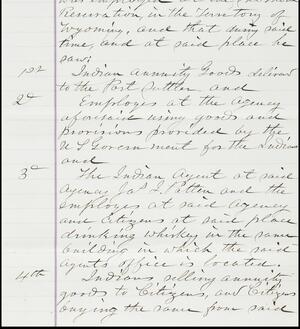 was employed at the
Reservation, in the Territory of
Wyoming, and that during said
time, and at said place he
saw;
1st Indian Annuity Goods deliver
to the Post Suttler and
2d Employes at the Agency
aforsaid using goods and
provisions provided by the
U S Government for the Indians
and
3d The Indian Agent at said
Agency Jas I. Patten and the
Employes at said Agency
and Citizens at said place
drinking whiskey in the same
building in which the said
Agents office is located.
4th Indians selling annuity
goods to Citizens, and Citizens
buying the same from said